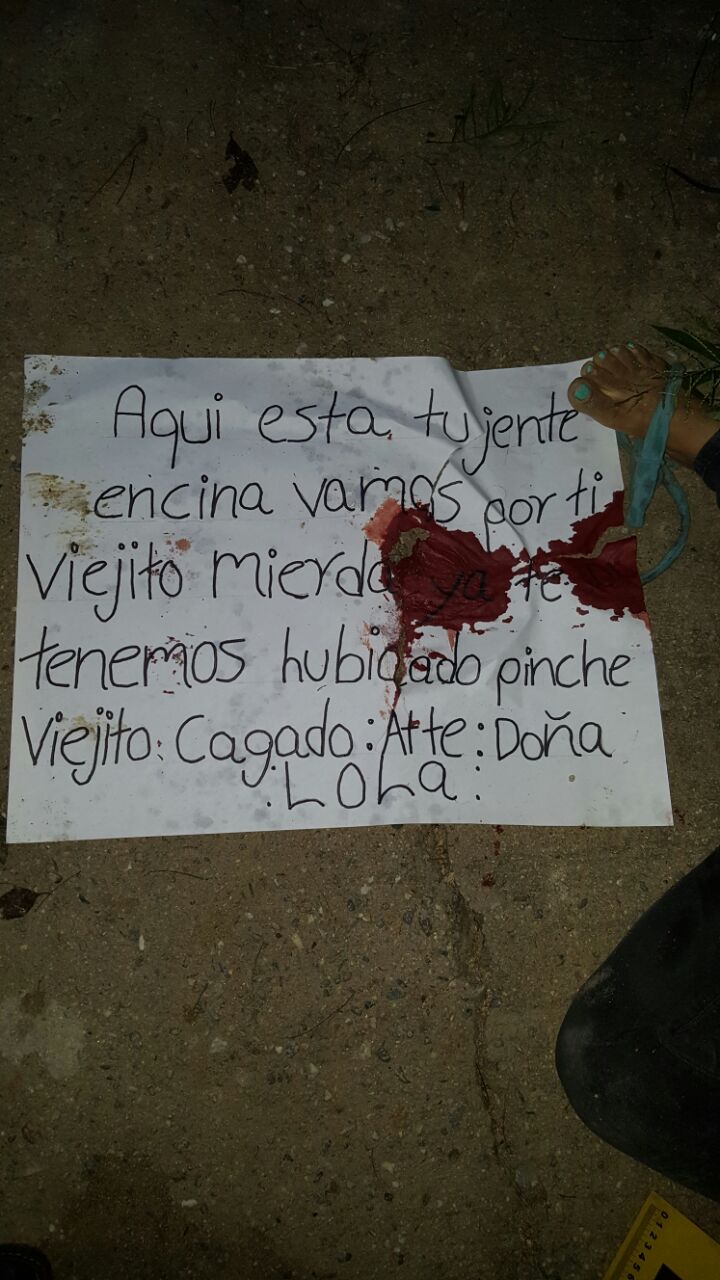 Aqui esta tu jente
encina vamos por ti
Viejito Mierda ya te
tenemos hubicado pinche
Viejito: Cagado: Atte: Doña
:LOLa:
0 1 2 3 4 5